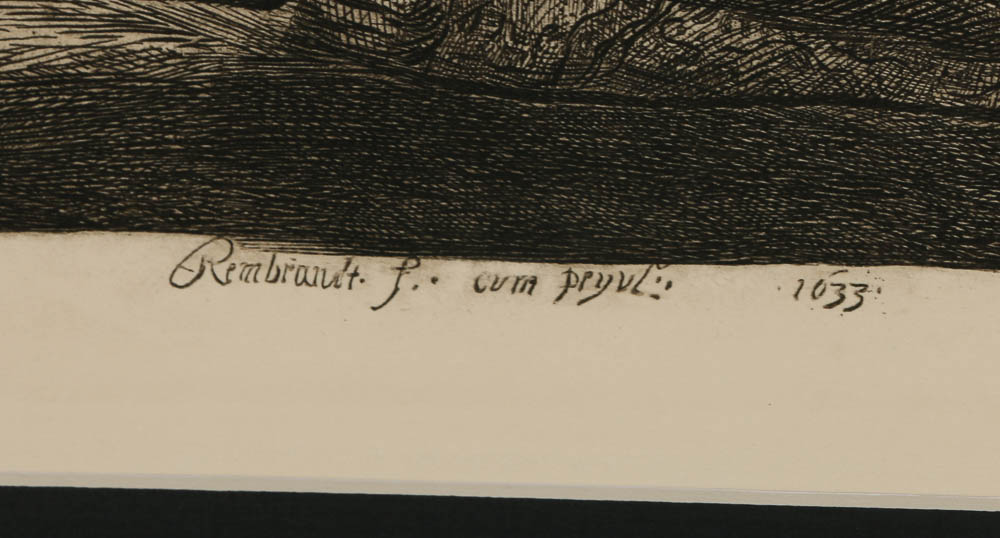 Rembrandt. f.. cum pryvl:. 1633.